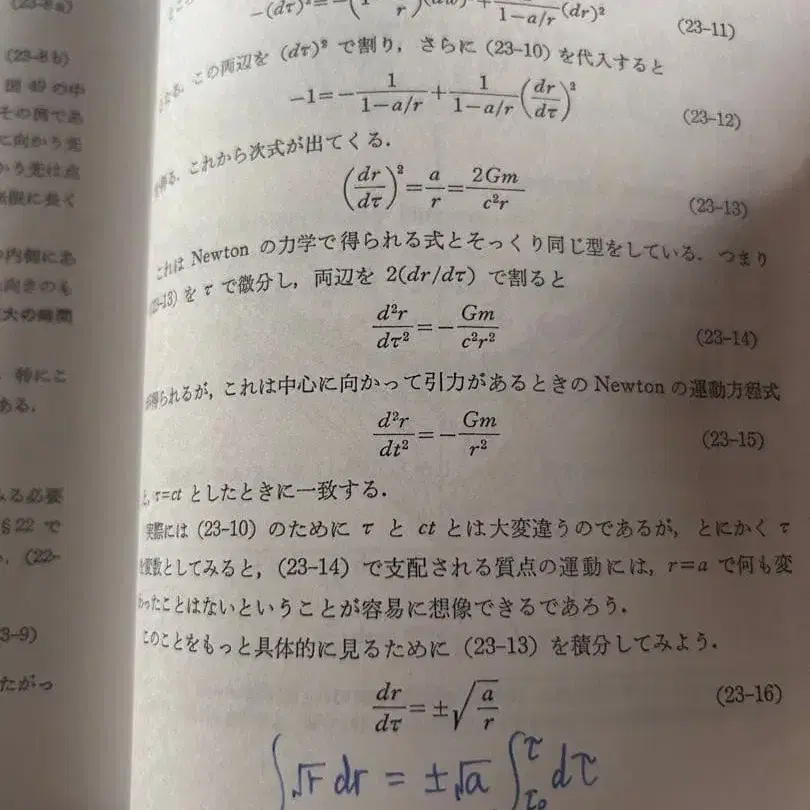 (23-8a)
(23-8b)
図 49 の中
その例であ
に向かう光
かう光は点
無限に長く
の内側にあ
向きのも
大の時間
特にこ
ある．
みる必要
§22 で
(22-
3-9)
たがっ
(23-11)
この両辺を (dτ)² で割り，さらに (23-10) を代入すると
-1=-1/(1-a/r)+1/(1-a/r)(dr/dτ)² (23-12)
これから次式が出てくる．
(dr/dτ)²=a/r=2Gm/c²r (23-13)
これは Newton の力学で得られる式とそっくり同じ型をしている．つまり
(23-13) を τ で微分し，両辺を 2(dr/dτ) で割ると
d²r/dτ²=-Gm/c²r² (23-14)
得られるが，これは中心に向かって引力があるときの Newton の運動方程式
d²r/dt²=-Gm/r² (23-15)
τ=ct としたときに一致する．
実際には (23-10) のために τ と ct とは大変違うのであるが，とにかく τ
変数としてみると，(23-14) で支配される質点の運動には，r=a で何も変
わったことはないということが容易に想像できるであろう．
このことをもっと具体的に見るために (23-13) を積分してみよう．
dr/dτ=±√(a/r) (23-16)
∫√r dr = ±√a ∫_τ₀^τ dτ